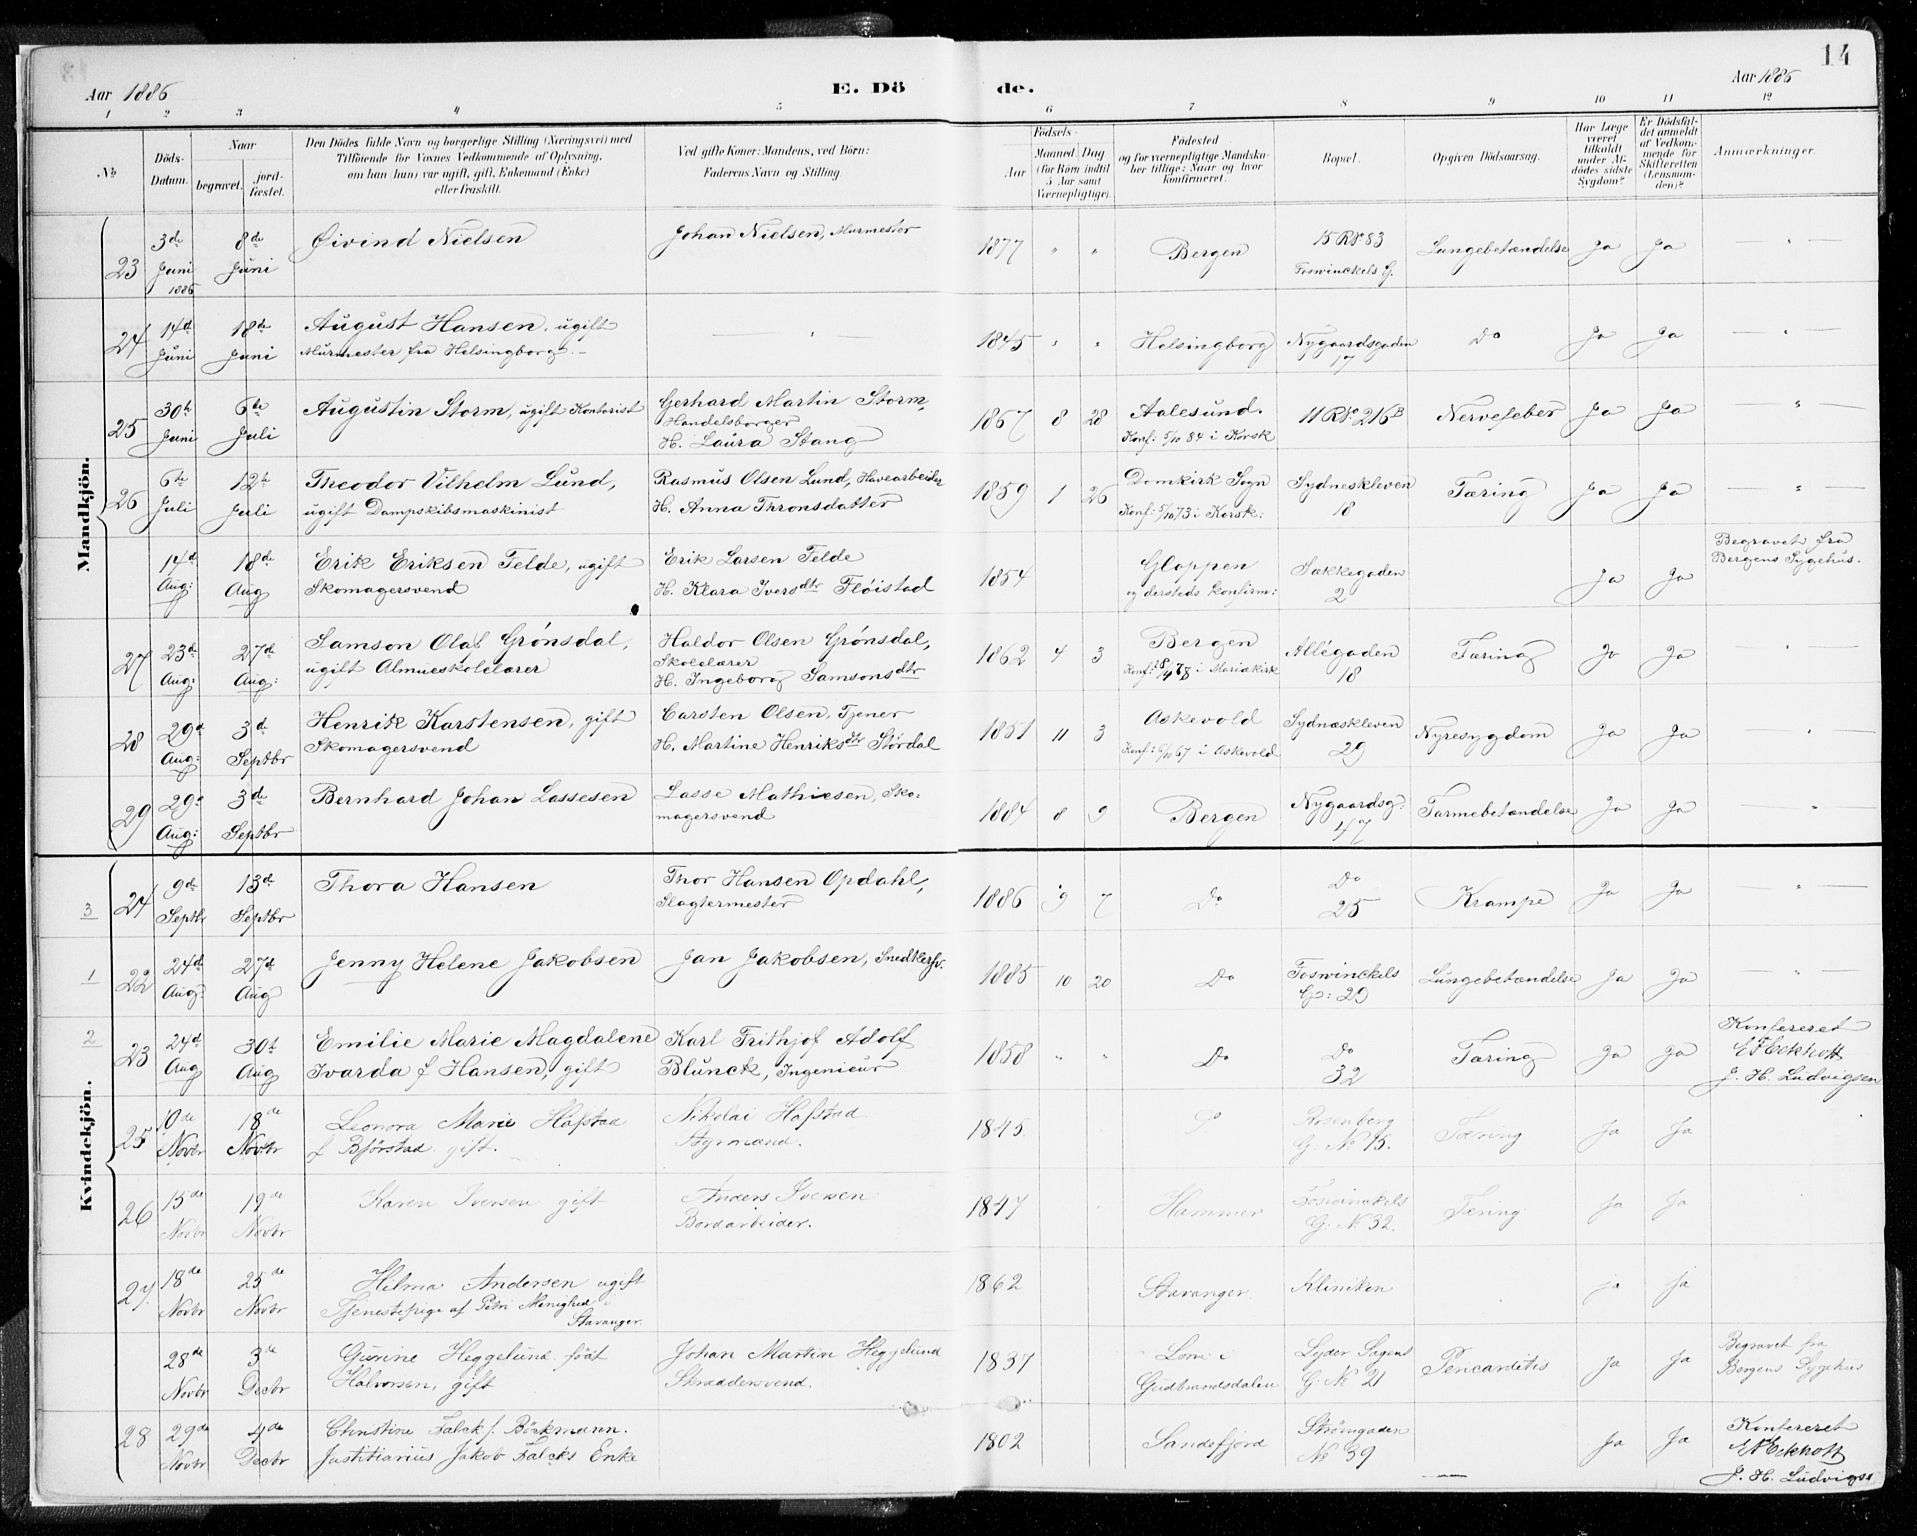 14
Aar 1886
E. Dö
de.
Aar 1886
1 2 3 4 5 6 7 8 9 10 11 12
No
Döds-Datum.
Naar
begravet.
jord-fæstet.
Den Dödes fulde Navn og borgerlige Stilling (Næringsvei) med
Tilföiende for Voxnes Vedkommende af Oplysning,
om han (hun) var ugift, gift, Enkemand (Enke)
eller fraskilt.
Ved gifte Koner: Mandens, ved Börn:
Faderens Navn og Stilling.
Födsels-
Aar
Maaned
Dag
(for Börn indtil
5 Aar samt
Værnepligtige).
Födested
og for værnepligtige Mandska-
ber tillige: Naar og hvor
konfirmeret.
Bopæl.
Opgiven Dödsaarsag.
Har Læge
været
tilkaldt
under Af-
dödes sidste
Sygdom?
Er Dödsfal-
det anmeldt
af Vedkom-
mende for
Skifteretten
(Lensman-
den)?
Anmærkninger.
Mandkjön.
23 3de Juni 1886 8de Juni Øivind Nielsen Johan Nielsen, Murmester 1877 " " Bergen 15 R No 83 Foswinckels G. Lungebetændelse Ja Ja — " —
24 14d Juni 18de Juni August Hansen, ugift
Murmester fra Helsingborg. — 1845 " " Helsingborg Nygaardsgaden 17 Do Ja Ja — " —
25 30te Juni 6te Juli Augustin Storm, ugift Kontorist Gerhard Martin Storm,
Handelsborger
H. Laura Stang 1867 8 28 Aalesund.
Konf: 5/10 84 i Korsk 11 R No 216B Nervefeber Ja Ja "
26 6te Juli 12te Juli Theodor Vilhelm Lund,
ugift Dampskibsmaskinist Rasmus Olsen Lund, Havearbeider
H. Anna Thronsdatter 1859 1 26 Domkirk Sogn
Konf: 5/10 73 i Korsk: Sydneskleven 18 Tæring Ja Ja "
14d Aug: 18de Aug Erik Eriksen Telde, ugift
Skomagersvend Erik Larsen Telde
H. Klara Iversdtr Fløistad 1854 Gloppen
og dersteds konfirm: Sækkegaden 2 Ja Ja Begravet fra
Bergens Sygehus.
27 23de Aug: 27de Aug: Samson Olaf Grønsdal,
ugift Almueskolelærer Haldor Olsen Grønsdal,
Skolelærer
H. Ingeborg Samsonsdtr 1862 4 3 Bergen
i Mariakirk Allégaden 18 Tæring Ja Ja "
28 29de Aug: 3de Septbr Henrik Karstensen, gift
Skomagersvend Carsten Olsen, Tjener
H. Martine Henriksdtr Stördal 1851 11 3 Askevold
Konf: 6/10 67 i Askevold Sydnæskleven 29 Nyresygdom Ja Ja "
29 29de Aug: 3de Septbr Bernhard Johan Lassesen Lasse Mathiesen, Sko-
magersvend 1884 8 9 Bergen Nygaardsg: 47 Tarmebetændelse Ja Ja "
Kvindekjön.
3 24 9de Septbr 13de Septbr Thora Hansen Thor Hansen Opdahl,
Slagtermester 1886 9 7 Do Do 25 Krampe Ja Ja — " —
1 22 24de Aug: 27de Aug Jenny Helene Jakobsen Jan Jakobsen, Snedkersv. 1885 10 20 Do Foswinckels G: 29 Lungebetændelse Ja Ja "
2 23 24de Aug 30te Aug Emilie Marie Magdalene
Ivarda f Hansen, gift Karl Frithjof Adolf
Blunck, Ingenieur 1858 " " Do Do 32 Tæring Ja Ja Konfereret
E F Eckhoff
J. H. Ludvigsen
25 10de Novbr 18de Novbr Leonora Marie Hafstad
f Bjørstad gift. Nikolai Hafstad
Styrmand. 1845. Rosenberg
G. No 15. Tæring Ja Ja
26 15de Novbr 19de Novbr Karen Iversen gift Anders Iversen
Bordarbeider. 1847 Hammer Foswinckels
G. No 32. Tæring Ja Ja
27. 18de Novbr 25de Novbr Hilma Andersen ugift
Tjenestepige af Petri Menighed
Stavanger. 1862 Stavanger. Kliniken ja ja
28de Novbr 3de Decbr Gurine Heggelund født
Halvorsen, gift Johan Martin Heggelund
Skræddersvend. 1837 Lom i
Gudbrandsdalen Lyder Sagens
G. No 21 Pericarditis Ja Ja Begravet fra
Bergens Sygehus
28 29de Novbr 4de Decbr Christine Falck f. Böckmann.
Justitiarius Jakob Falcks Enke 1802 Sandefjord Strømgaden
No 39 Ja Ja Konfereret
E F Eckhoff
J. H. Ludvigse